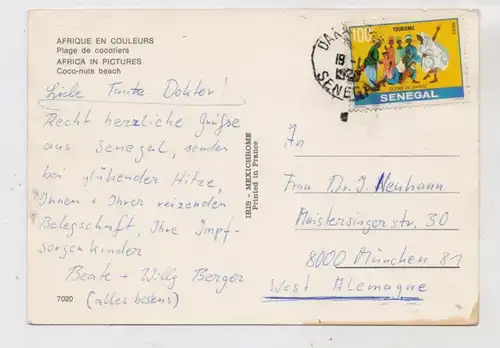 AFRIQUE EN COULEURS
Plage de cocotiers
AFRICA IN PICTURES
Coco-nuts beach
Liebe Tante Doktor!
Recht herzliche Grüße
aus Senegal, senden
bei glühender Hitze,
Ihnen + Ihrer reizenden
Belegschaft, Ihre Impf-
sorgenkinder
Beate + Willy Berger
(alles bestens)
7020
IRIS - MEXICHROME
Printed in France
100
TOURISME
SENEGAL
DAKAR
19
SENEGAL
An
Frau Dr. J. Neuhann
Meistersingerstr. 30
8000 München 81
West Allemagne